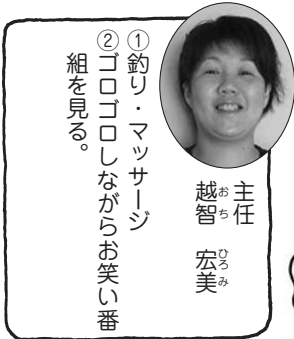 主任
越智　宏美
おち　ひろみ
①釣り・マッサージ
②ゴロゴロしながらお笑い番
組を見る。